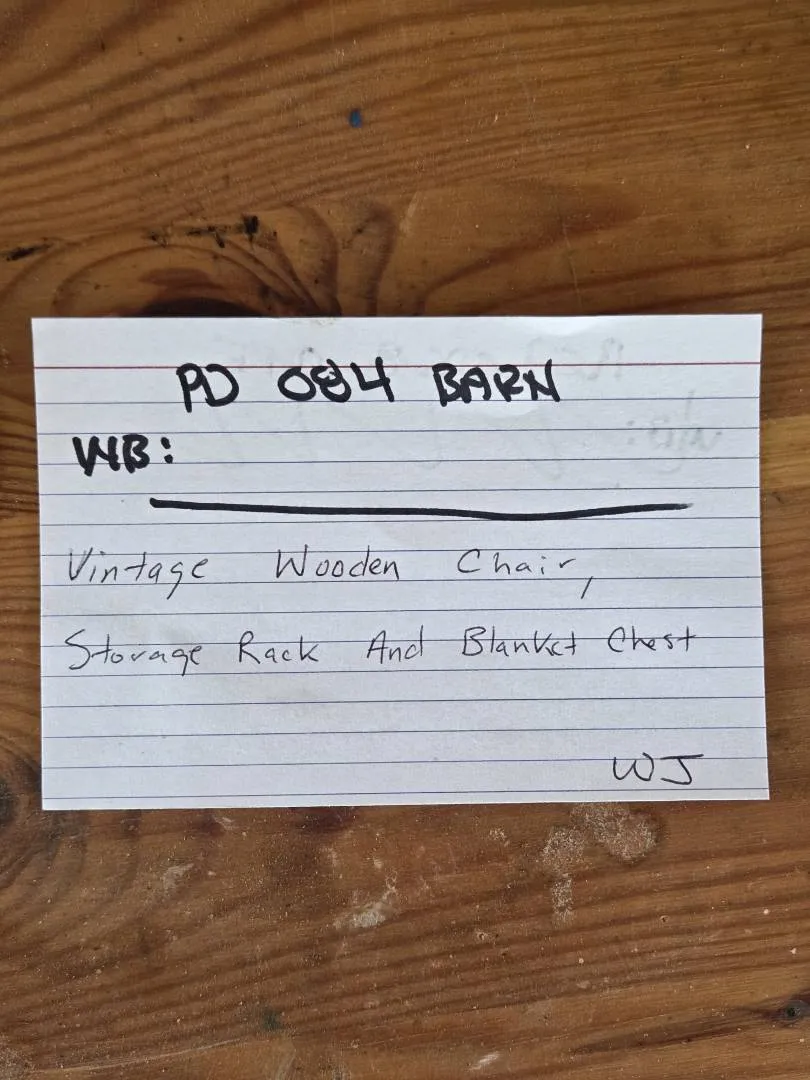 PD 084 BARN
WB:
Vintage Wooden Chair,
Storage Rack And Blanket Chest
WJ